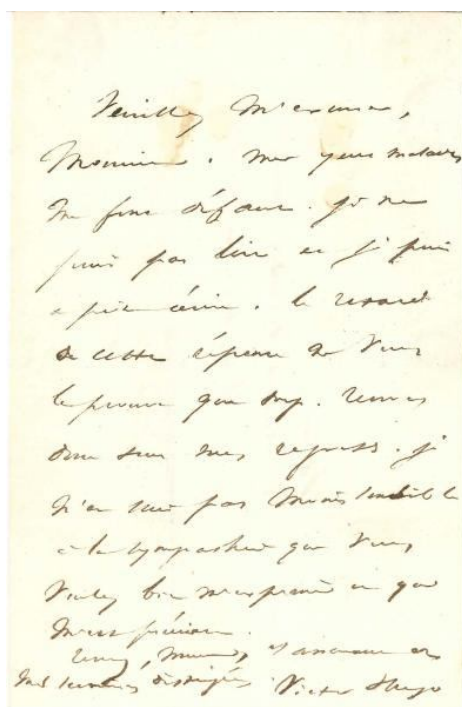 Veuillez m'excuser,
Monsieur. mes yeux malades
me font défaut. je ne
puis pas lire et je puis
à peine écrire. le retard
de cette réponse ne vous
le prouve que trop. Recevez
donc tous mes regrets. je
n'en suis pas moins sensible
à la sympathie que vous
voulez bien m'exprimer et qui
m'est précieuse.
Recevez, Monsieur, l'assurance de
mes sentiments distingués
Victor Hugo